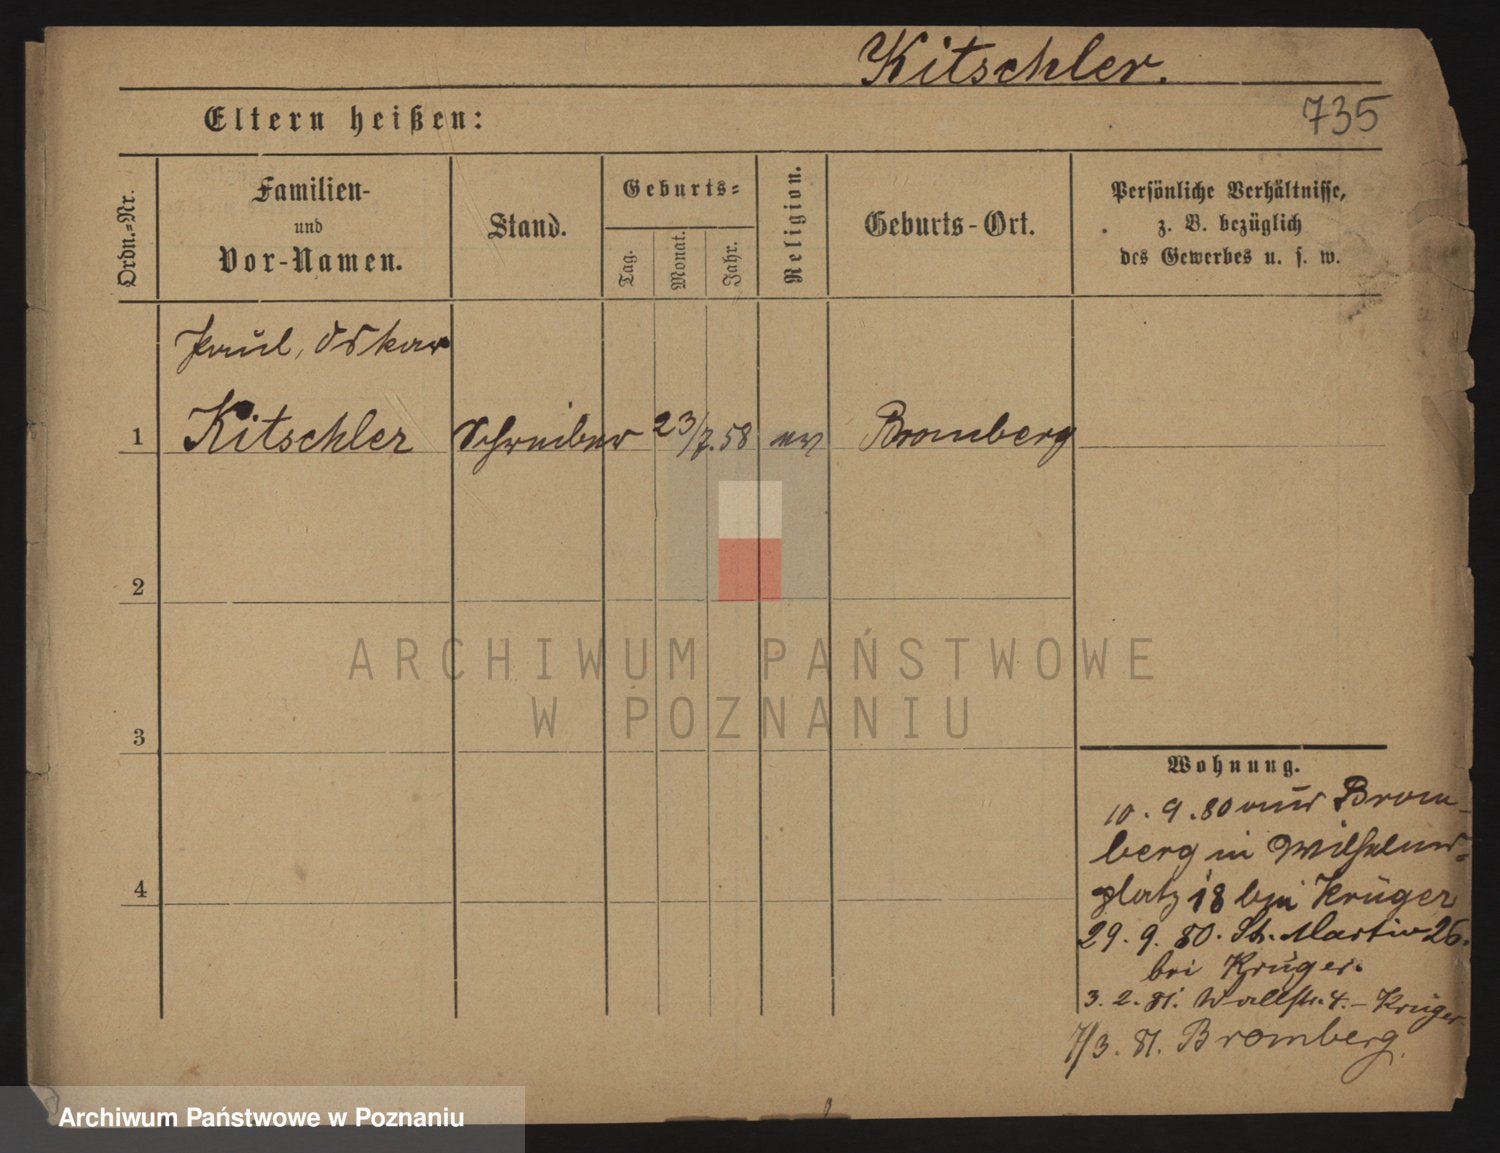 Kitschler.
735
Eltern heißen:
Ordn.-Nr.
Familien-
und
Vor-Namen.
Stand.
Geburts-
Tag.
Monat.
Jahr.
Religion.
Geburts-Ort.
Persönliche Verhältnisse,
z. B. bezüglich
des Gewerbes u. s. w.
Paul, Oskar
1 Kitschler Schreiber 23/7.58 ev Bromberg
2
3
4
ARCHIWUM PAŃSTWOWE
W POZNANIU
Wohnung.
10. 9. 80 aus Brom-
berg in Wilhelms-
platz 18 bei Krüger
29. 9. 80. St. Martin 26.
bei Krüger.
3. 2. 81. Wallstr. 4. – Krüger
7/3. 81. Bromberg.
Archiwum Państwowe w Poznaniu